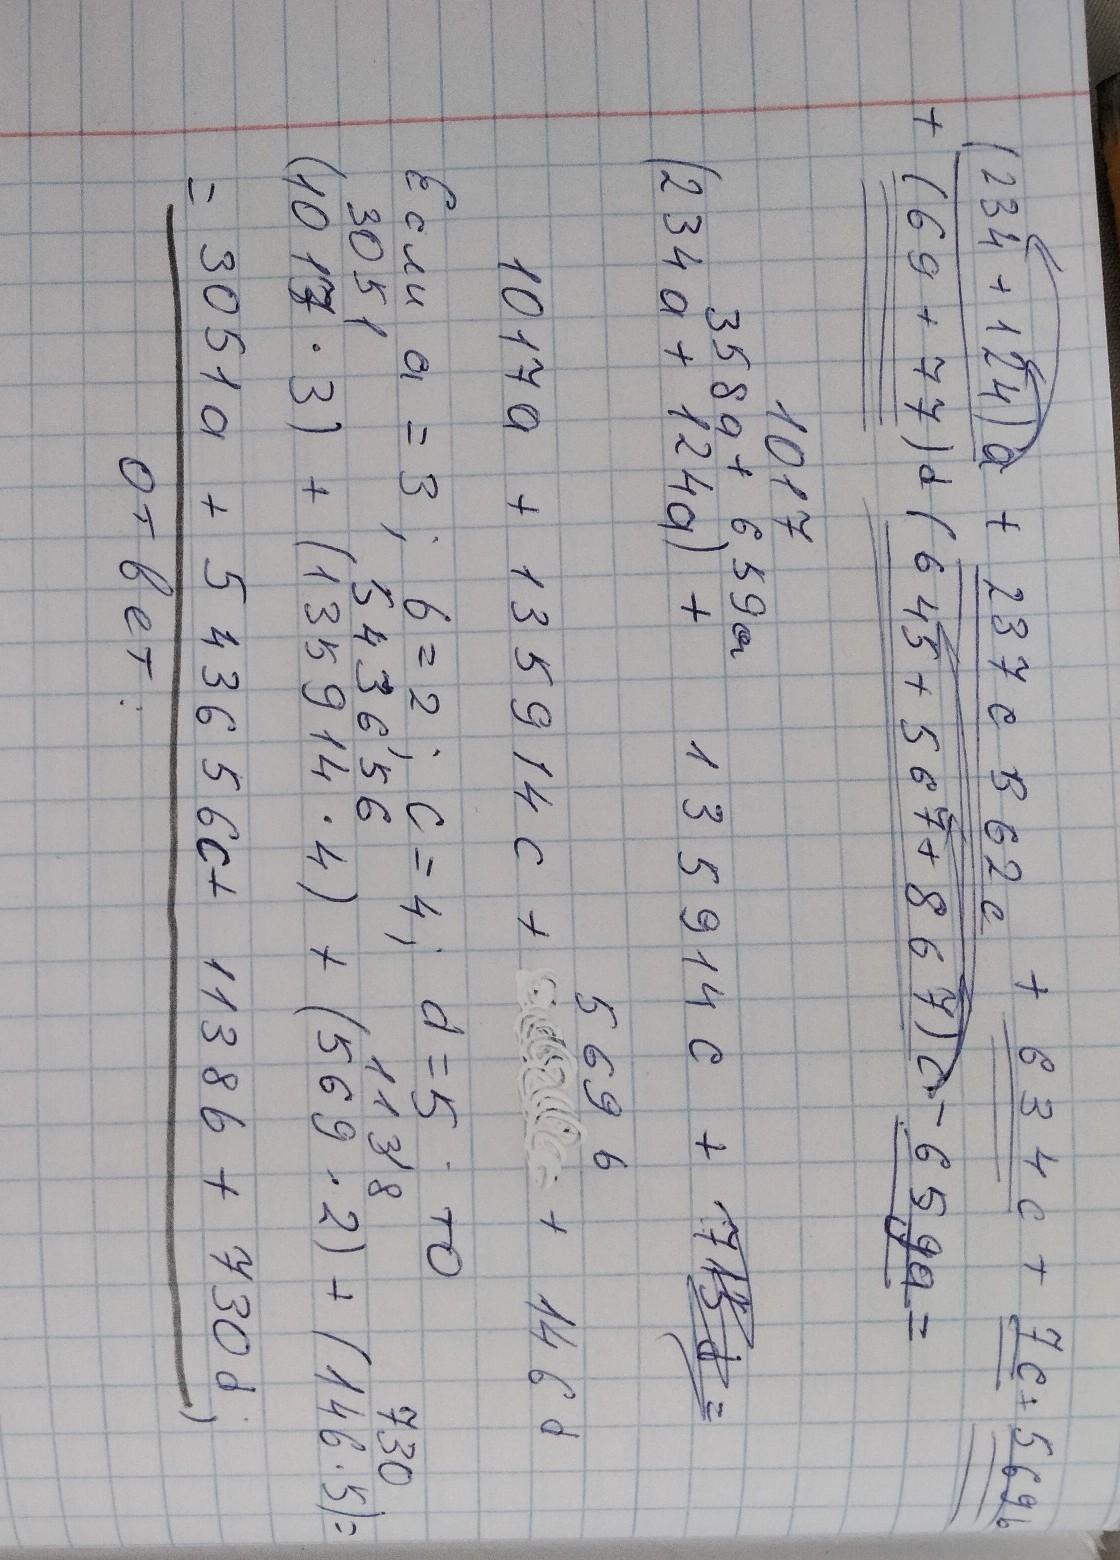 (234+124)a + 237c 562c + 634c + 7c + 569b
+ (69+77)d (645+567+867)c - 659a =
1017
358a + 659a
(234a + 124a) + 135914c + =
569b
1017a + 135914c + + 146d
Если a = 3; b = 2; c = 4; d = 5. то
3051 543656 1138 730
(1017 · 3) + (135914 · 4) + (569 · 2) + (146 · 5) =
= 3051a + 543656c + 1138b + 730d;
ответ: